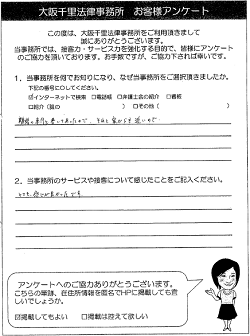 大阪千里法律事務所　お客様アンケート
この度は、大阪千里法律事務所をご利用頂きまして
誠にありがとうございます。
当事務所では、接客力・サービス力を強化する目的で、皆様にアンケート
のご協力を頂いております。お手数ですが、ご協力下されば幸いです。
1．当事務所を何でお知りになり、なぜ当事務所をご選択頂きましたか。
下記の番号に○してください。
☑インターネットで検索　□電話帳　□弁護士会の紹介　□看板
□紹介（誰の　　　）　□その他（　　　）
2．当事務所のサービスや接客について感じたことをご記入ください。
とても 感じが良かったです
アンケートへのご協力ありがとうございます。
こちらの筆跡、在住所情報を匿名でHPに掲載しても宜
しいでしょうか。
☑掲載してもよい　□掲載は控えて欲しい